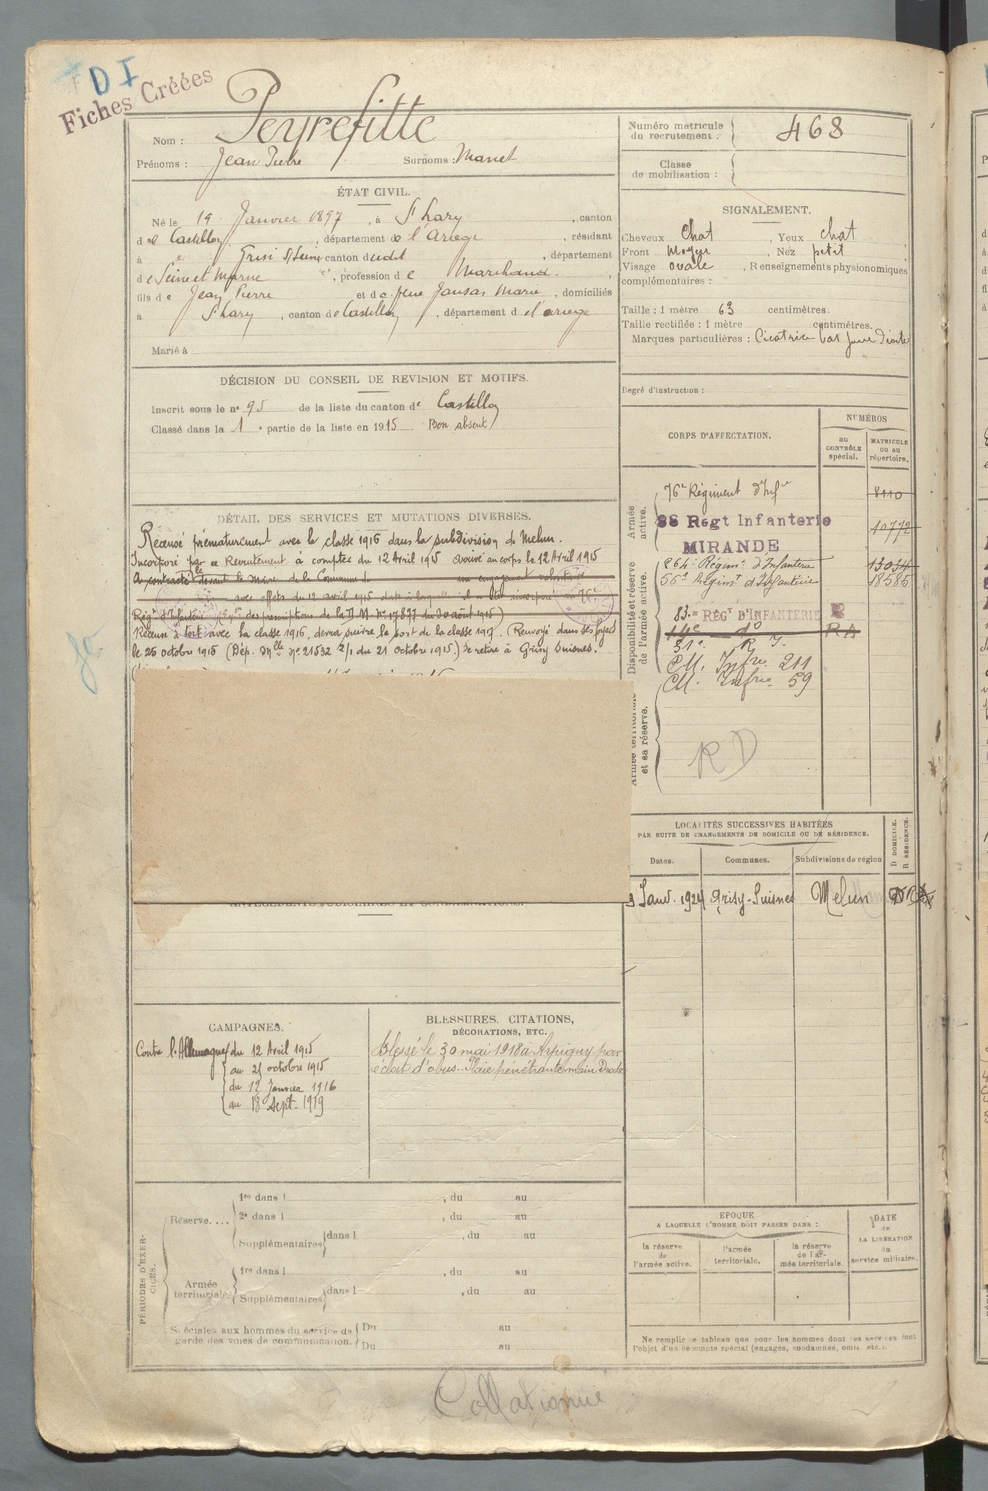 D I
Fiches Créées
Nom : Peyrefitte
Prénoms : Jean Pierre Surnoms : Manet
Numéro matricule du recrutement : 468
Classe de mobilisation :
ÉTAT CIVIL.
Né le 19 Janvier 1897, à St Lary, canton
de Castillon, département de l'Ariège, résidant
à Grisi S/Seine canton dudit, département
de Seine et Marne, profession de Marchand.
fils de Jean Pierre et de feue Jansas Marie, domiciliés
à St Lary, canton de Castillon, département de l'ariège
Marié à
SIGNALEMENT.
Cheveux Chat, Yeux chat
Front moyen, Nez petit
Visage ovale, Renseignements physionomiques
complémentaires :
Taille : 1 mètre 63 centimètres.
Taille rectifiée : 1 mètre centimètres.
Marques particulières : Cicatrice bas joue Droite
Degré d'instruction :
DÉCISION DU CONSEIL DE REVISION ET MOTIFS.
Inscrit sous le n° 95 de la liste du canton de Castillon
Classé dans la 1e partie de la liste en 1915 Bon absent
CORPS D'AFFECTATION.
NUMÉROS
au CONTRÔLE spécial.
MATRICULE ou au répertoire.
Armée active.
76e Régiment d'Infie 8110
88 Regt Infanterie 10772
MIRANDE
Disponibilité et réserve de l'armée active.
264e Régimt d'Infanterie 13034
56e Régimt d'Infanterie 18586
83me REGt D'INFANTERIE R
14e do RA
31e R. I.
CM. Infie 211
CM. Infie 59
Armée territoriale et sa réserve.
RD
DÉTAIL DES SERVICES ET MUTATIONS DIVERSES.
Recensé prématurement avec la classe 1916 dans la subdivision de Melun.
Incorporé par le Recrutement à compter du 12 Avril 1915 arrivé au corps le 12 Avril 1915
A contracté devant le Maire de la Commune de un engagement volontaire
avec effets du 12 avril 1915 date à laquelle il a été incorporé au 76e
Régt d'Infanterie des prescriptions de la D.M. No 19877 du 30 août 1915)
Recensé à tort avec la classe 1916, devra suivre le sort de la classe 1917. Renvoyé dans ses foyers
le 26 octobre 1915 (Dép. Mlle No 21532 2/1 du 21 octobre 1915) Se retire à Grisy Suisnes.
LOCALITÉS SUCCESSIVES HABITÉES
PAR SUITE DE CHANGEMENTS DE DOMICILE OU DE RÉSIDENCE.
Dates. Communes. Subdivisions de région D DOMICILE. R RÉSIDENCE.
9 Janv. 1924 Grisy-Suisnes Melun
ANTÉCÉDENTS JUDICIAIRES ET CONDAMNATIONS.
CAMPAGNES.
Contre l'Allemagne du 12 Avril 1915
au 25 octobre 1915
du 12 Janvier 1916
au 18 Sept. 1919
BLESSURES, CITATIONS,
DÉCORATIONS, ETC.
Blessé le 30 mai 1918 à Arpigny par
éclat d'obus. Plaie pénétrante main Droite
PÉRIODES D'EXERCICES.
Réserve....
1re dans l , du au
2e dans l , du au
Supplémentaires dans l , du au
Armée territoriale
1re dans l , du au
Supplémentaires dans l , du au
Spéciales aux hommes du service de garde des voies de communication.
Du au
Du au
EPOQUE
A LAQUELLE L'HOMME DOIT PASSER DANS :
la réserve de l'armée active.
l'armée territoriale.
la réserve de l'armée territoriale.
DATE de LA LIBÉRATION du service militaire.
Ne remplir ce tableau que pour les hommes dont les services font
l'objet d'un décompte spécial (engagés, condamnés, omis, etc.).
Collationné